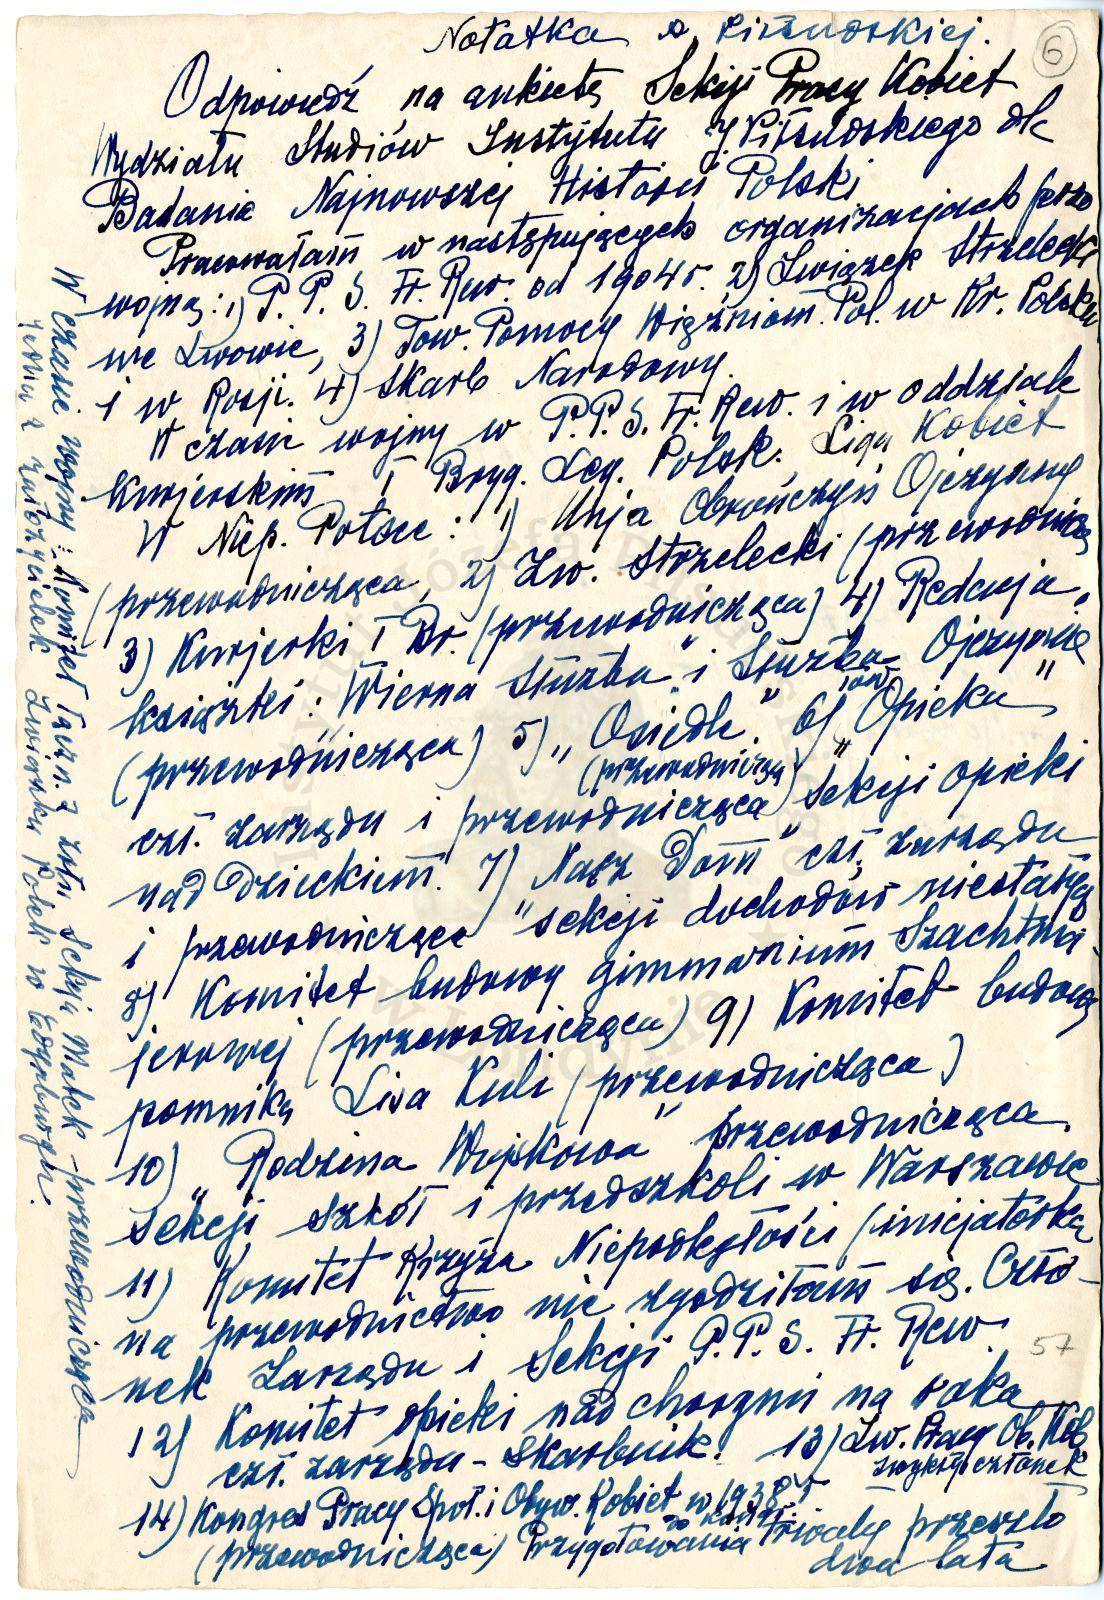 Notatka A. Piłsudskiej.
6
Odpowiedź na ankietę Sekcji Pracy Kobiet
Wydziału Studiów Instytutu J. Piłsudskiego dla
Badania Najnowszej Historii Polski
Pracowałam w następujących organizacjach przed
wojną: 1) P.P.S. Fr. Rew. od 1904 r. 2) Związek Strzelecki
we Lwowie, 3) Tow. Pomocy Więźniom Pol. w Kr. Polskim
i w Rosji. 4) Skarb Narodowy.
W czasie wojny w P.P.S. Fr. Rew. i w oddziale
Kurjerskim I Bryg. Leg. Polsk. Liga Kobiet
W Niep. Polsce: 1) Unja Obrończyń Ojczyzny
(przewodnicząca, 2) Zw. Strzelecki (przewodnicząca
3) Kurjerki I Br. (przewodnicząca) 4) Redakcja
książki: Wierna Służba" i Służba Ojczyźnie"
(przewodnicząca) 5) „Osiedle" 6) „Opieka"
(przewodnicząca)
czł. zarządu i przewodnicząca sekcji opieki
nad Dzieckiem. 7) „Nasz Dom" czł. zarządu
i przewodnicząca sekcji dochodów niestałych
8) Komitet budowy gimnazium Szachtma-
jerowej (przewodnicząca) 9) Komitet budowy
pomnika Lisa Kuli (przewodnicząca)
10) „Rodzina Wojskowa" przewodnicząca
sekcji szkół i przedszkoli w Warszawie
11) Komitet Krzyża Niepodległości (inicjatorka
na przewodnictwo nie zgodziłam się. Czło-
nek Zarządu i Sekcji P.P.S. Fr. Rew.
57
12) Komitet opieki nad chorymi na raka
czł. zarządu - skarbnik. 13) Zw. Pracy Ob. Kob
zwykły członek
14) Kongres Pracy Społ. i Obyw. Kobiet w 1938 r
(przewodnicząca) Przygotowania trwały przeszło
dwa lata
W czasie wojny: Komitet Tow. i Sekcja Matek - przewodnicząca
jedna z założycielek Związku Polek w Edynburgu.